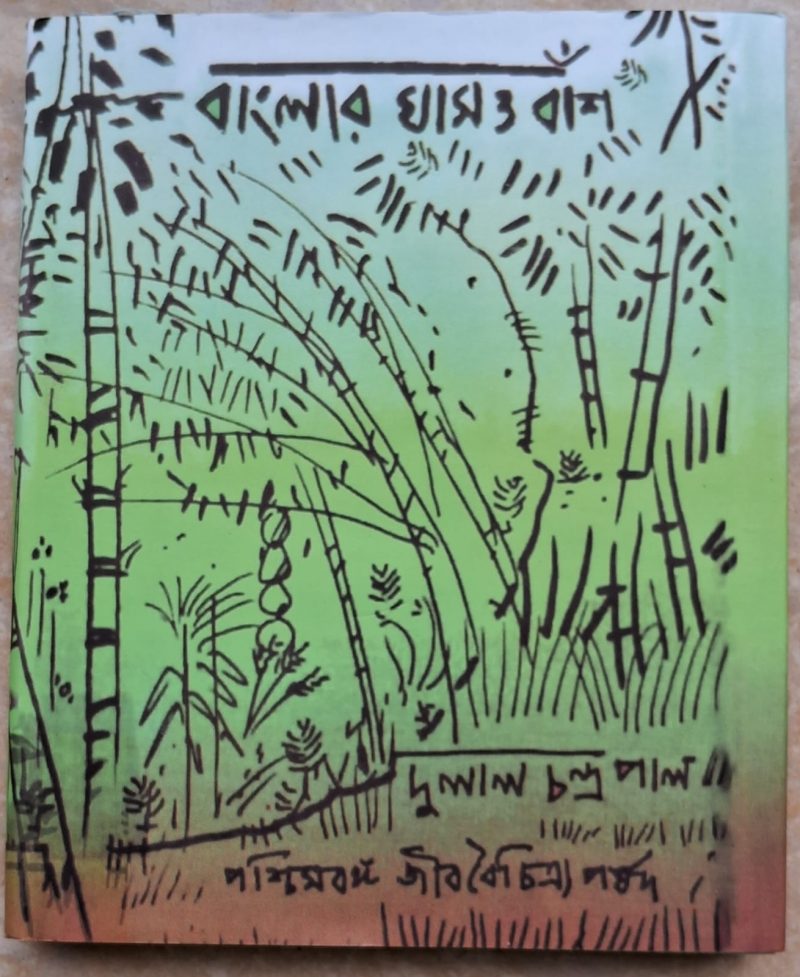 বাংলার ঘাস ও বাঁশ
দুলাল চন্দ্র পাল
পশ্চিমবঙ্গ জীববৈচিত্র্য পর্ষদ